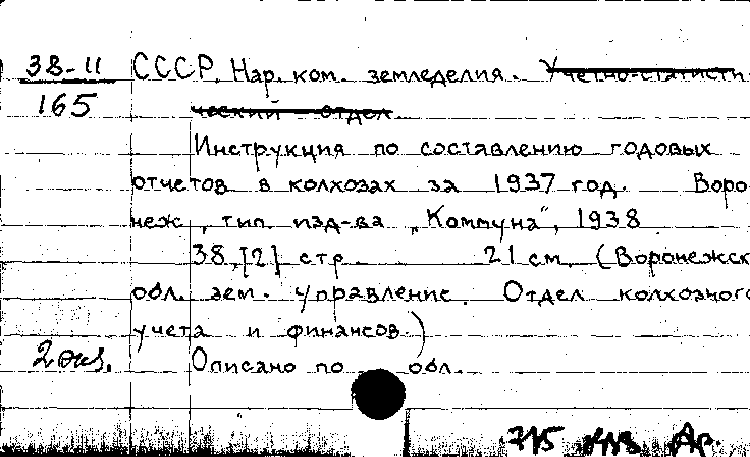 38-11 СССР. Нар. ком. земледелия. Учетно-статисти
165 ческий отдел
Инструкция по составлению годовых
отчетов в колхозах за 1937 год. Воро-
неж, тип. изд-ва „Коммуна“, 1938
38, [2] стр. 21 см. (Воронежск
обл. зем. управление. Отдел колхозного
учета и финансов.)
2 экз. Описано по обл.
715 Др.